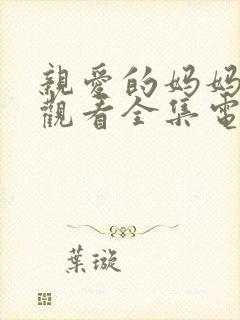 親愛的妈妈
觀看全集電
葉璇